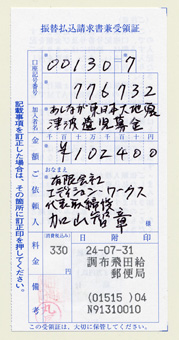 振替払込請求書兼受領証
口座記号番号
00130 7
776732
加入者名
あしなが東日本大地震
津波遺児募金
金額
千 百 十 万 千 百 十 円
¥102400
ご依頼人
おなまえ
有限会社
エディション・ワークス
代表取締役
加山哲章
料金
(消費税込み)
330
備考
日附印
24-07-31
調布飛田給
郵便局
(01515 )04
N91310010
記載事項を訂正した場合は、その箇所に訂正印を押してください。
この受領証は、大切に保管してください。